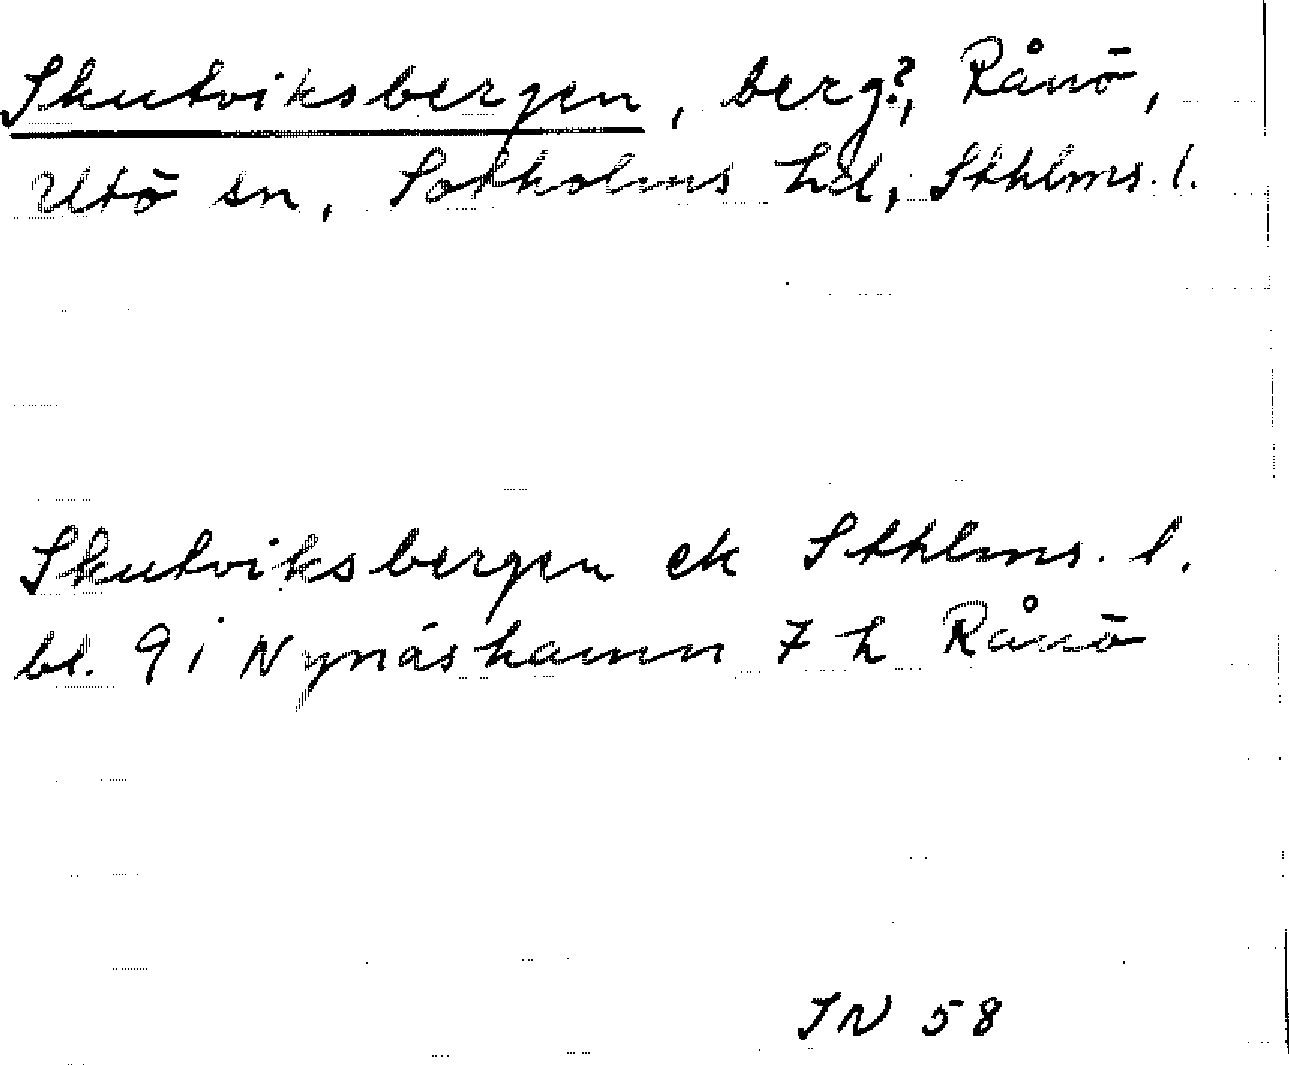 Skutviksbergen, berg?, Rånö,
Utö sn, Sotholms hd, Sthlms. l.
Skutviksbergen ek Sthlms. l.
bl. 9 i Nynäshamn 7 h Rånö
IN 58